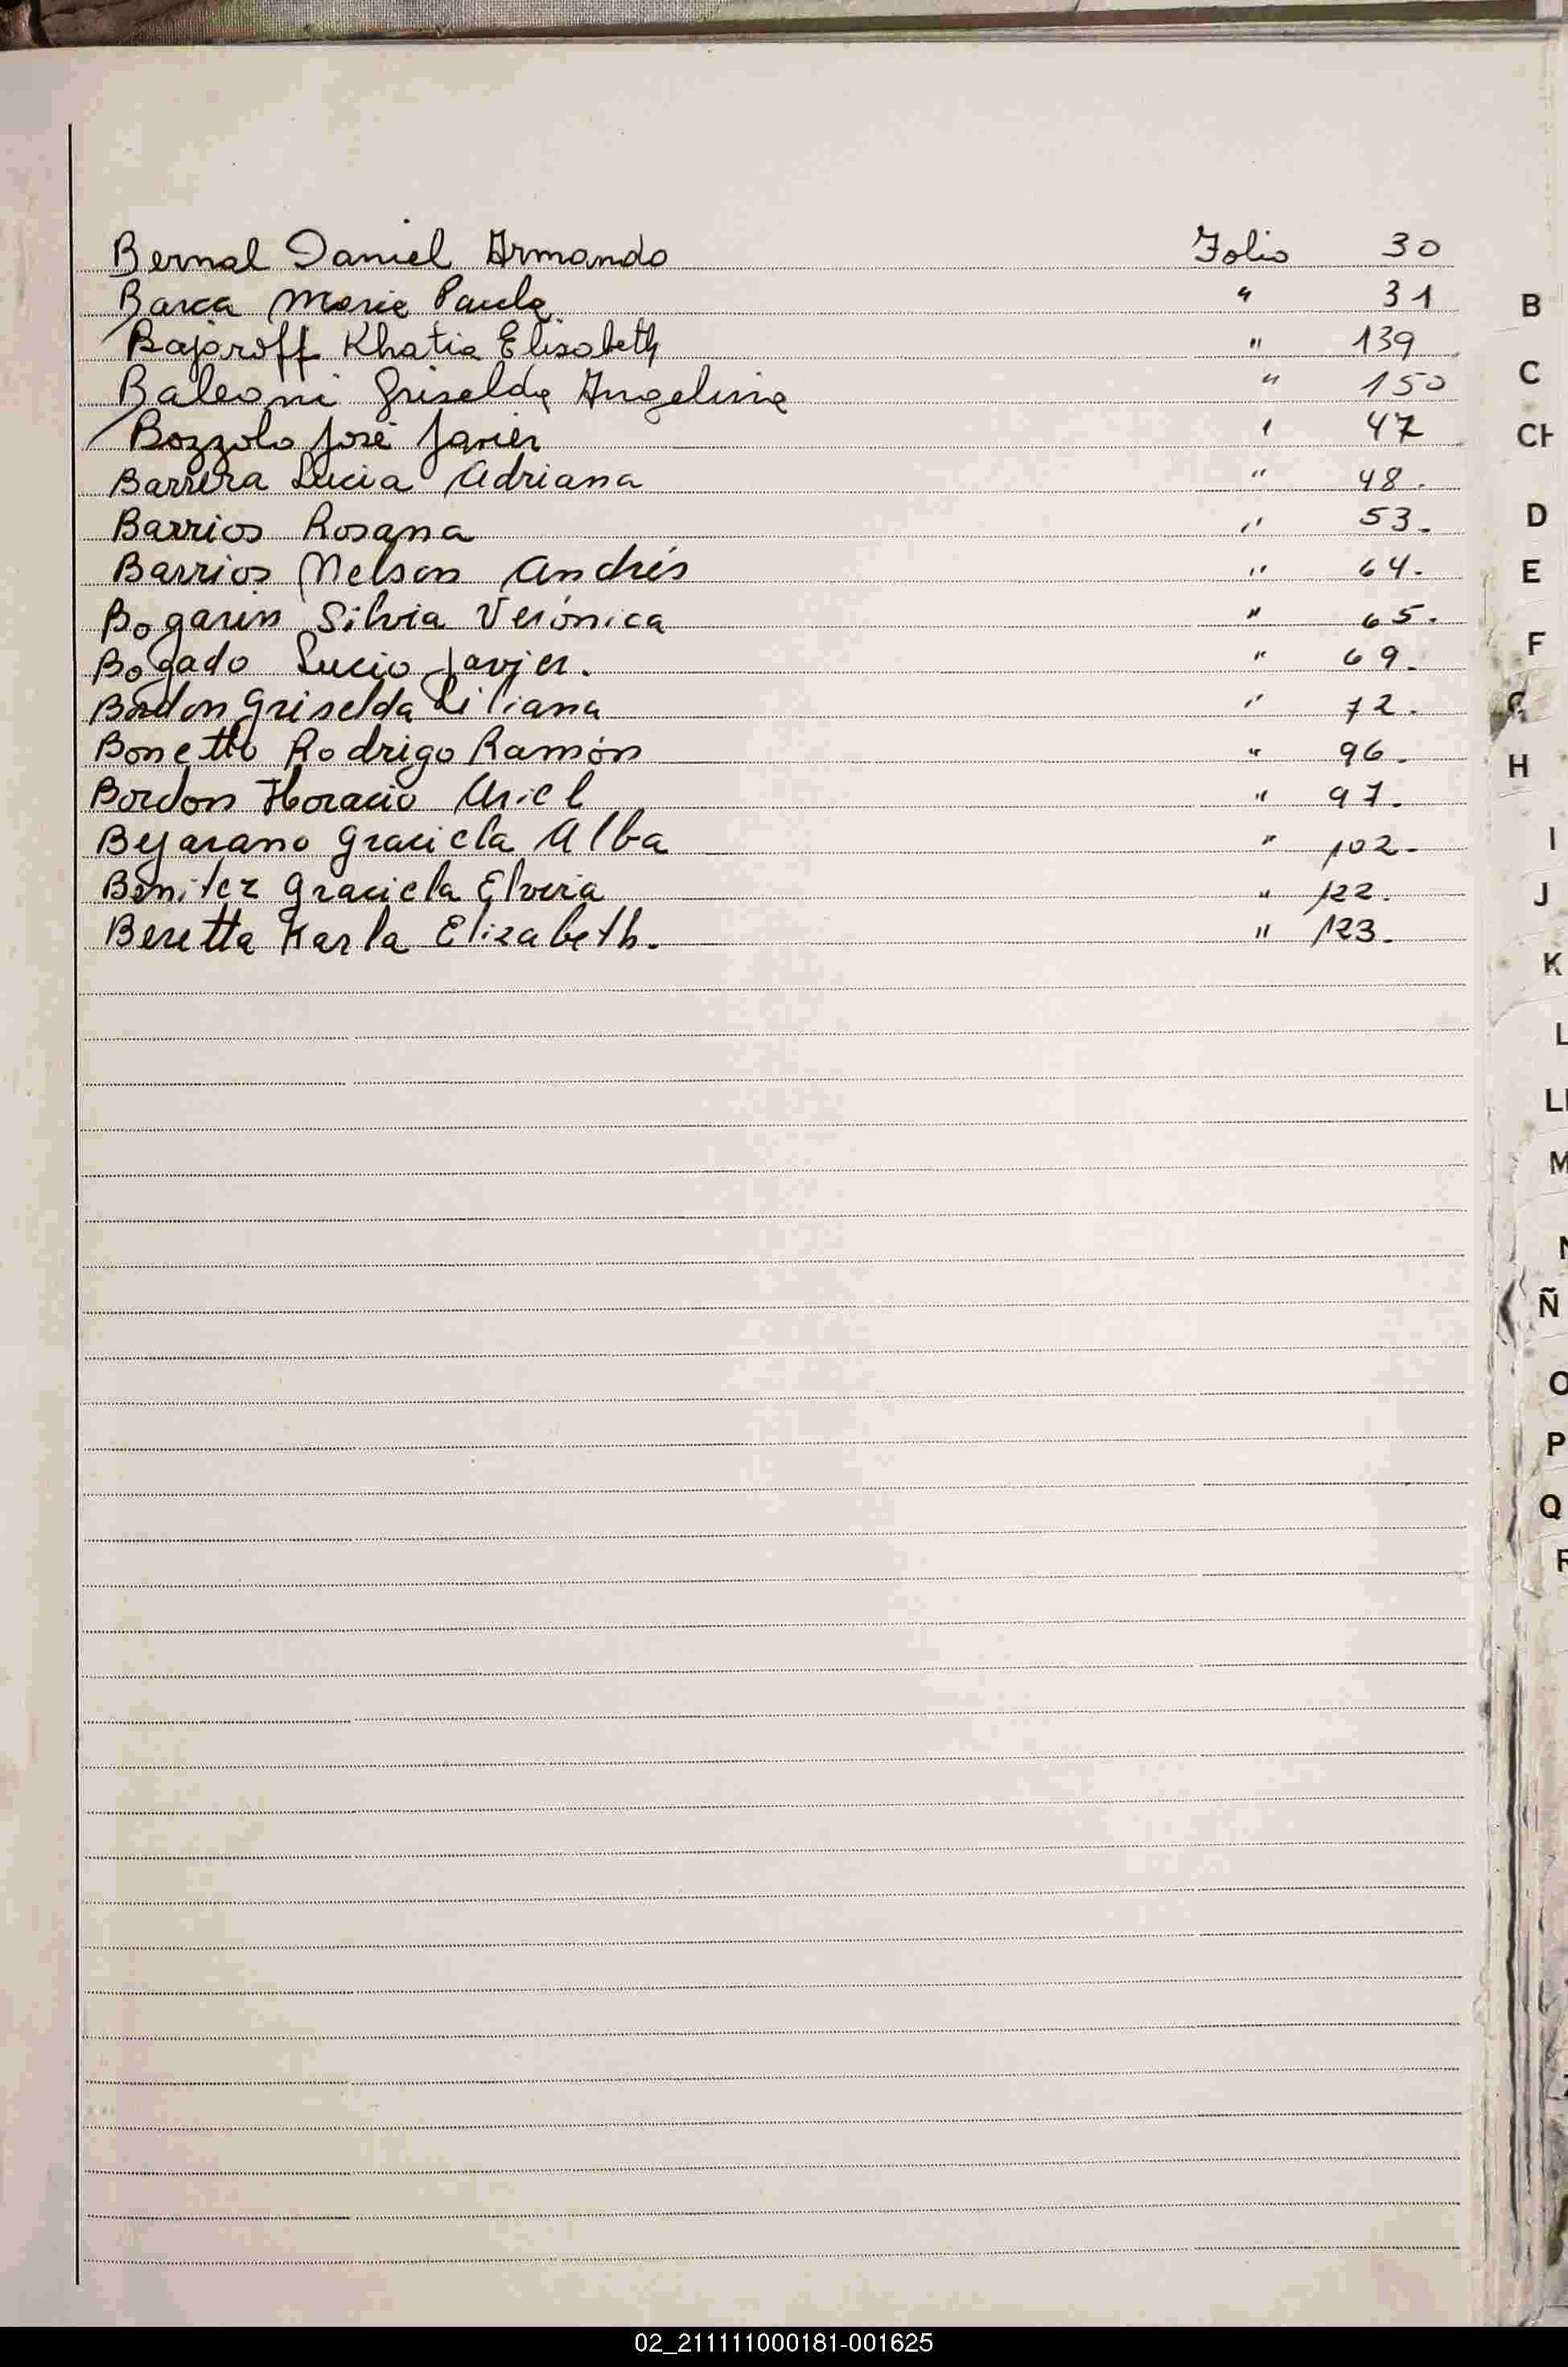 Bernal Daniel Armando Folio 30
Barca Maria Paula " 31
Bajaroff Khatia Elisabeth " 139
Baleani Griselda Angelina " 150
Bozzolo José Javier " 47
Barrera Lucia Adriana " 48.
Barrios Rosana " 53.
Barrios Nelson Andrés " 64.
Bogarin Silvia Verónica " 65.
Bogado Lucio Javier. " 69.
Bordon Griselda Liliana " 72.
Bonetto Rodrigo Ramón " 96.
Bordon Horacio Ariel " 97.
Bejarano Graciela Alba " 102.
Benitez Graciela Elvira " 122.
Beretta Karla Elizabeth. " 123.
B
C
CH
D
E
F
G
H
I
J
K
L
LL
M
N
Ñ
O
P
Q
R
02_211111000181-001625